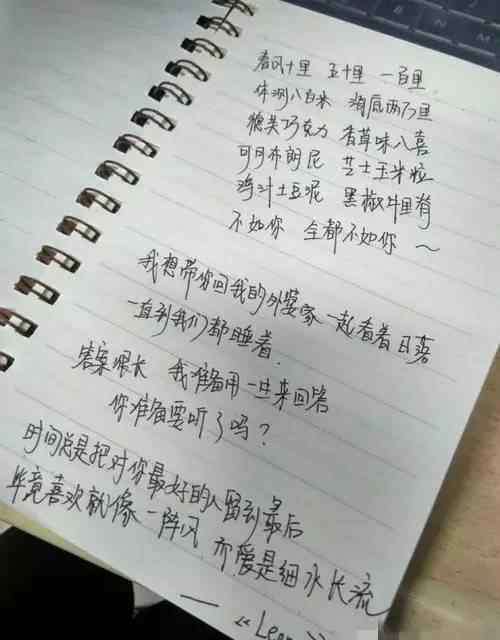 春风十里 五十里 一百里
体测八百米 海底两万里
德芙巧克力 香草味八喜
可可布朗尼 芝士玉米粒
鸡汁土豆呢 黑椒牛里脊
不如你 全都不如你 ～
我想带你回我的外婆家 一起看着日落
一直到我们都睡着.
答案很长 我准备用一生来回答
你准备要听了吗？
时间总是把对你最好的人留到最后
毕竟喜欢就像一阵风 而爱是细水长流
— 《Leo